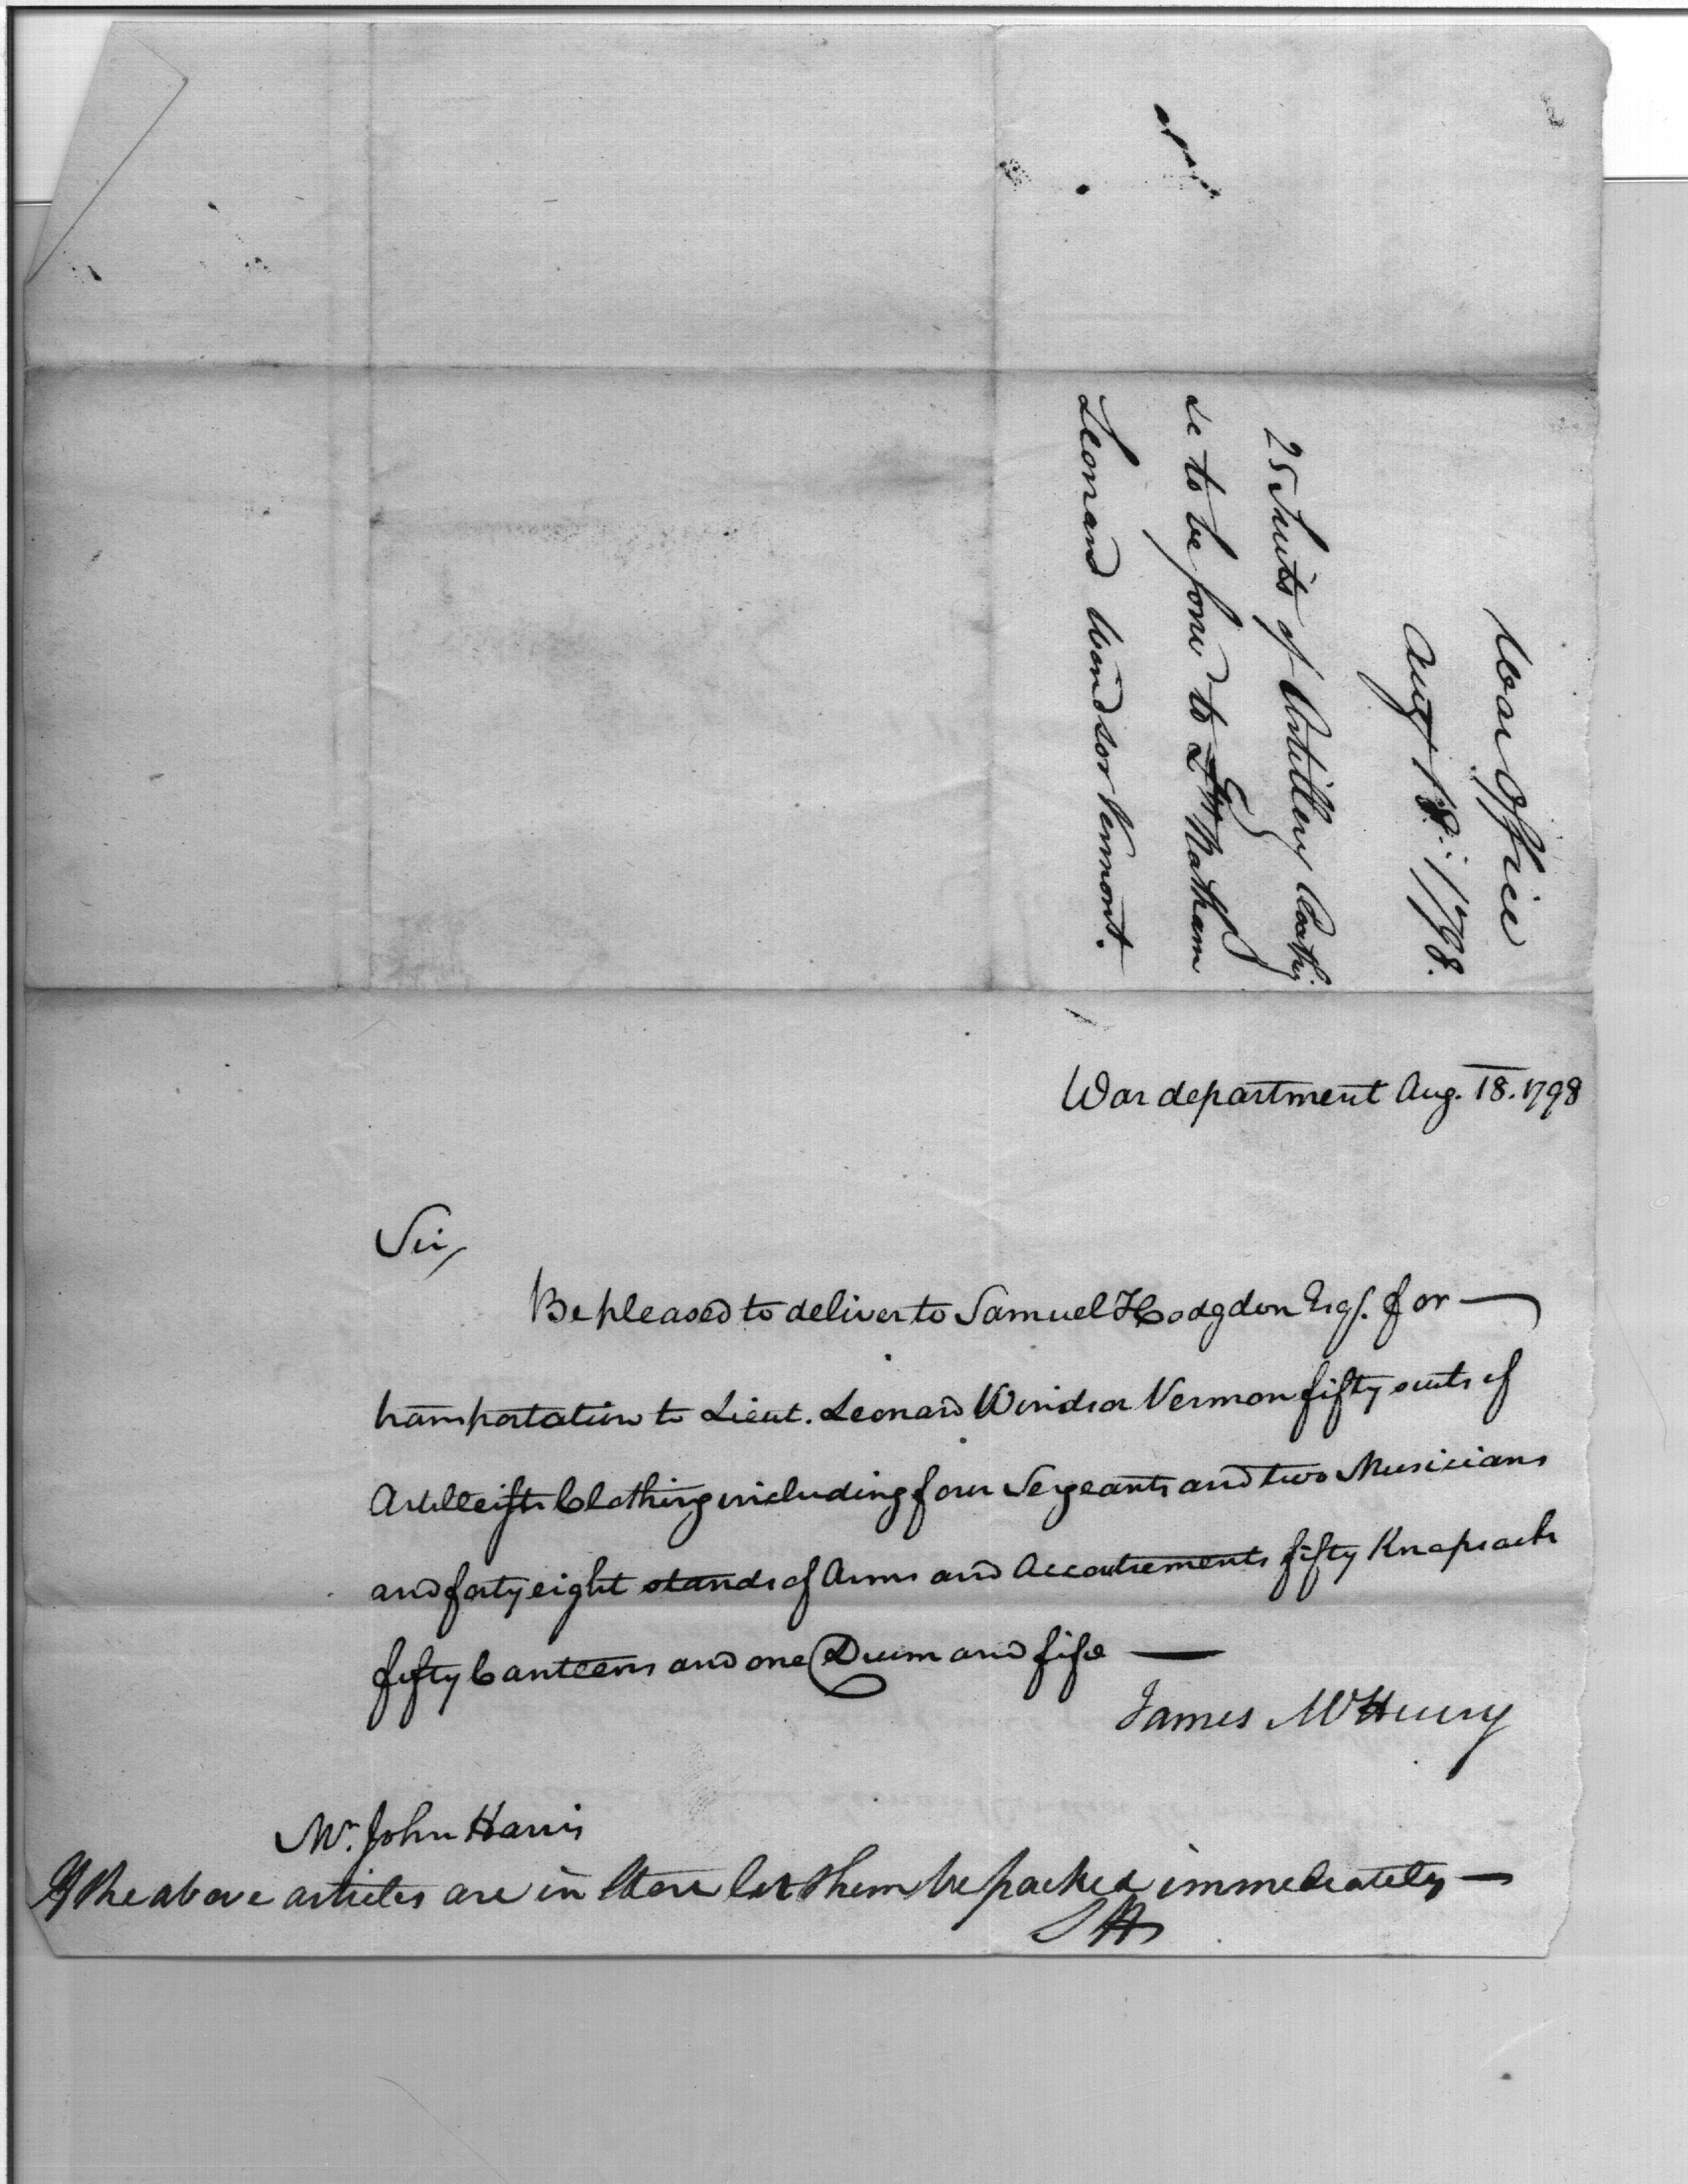 War Office
Augt 18. 1798.
25 Suits of Artillery Cloathg
&c to be forwd to Nathan
Leonard Windsor Vermont.
War department Aug. 18. 1798
Sir,
Be pleased to deliver to Samuel Hodgdon Esqr. for —
transportation to Lieut. Leonard Windsor Vermon fifty suits of
Artillerists Clothing including four Sergeants and two Musicians
and forty eight stands of Arms and Accoutrements fifty Knapsacks
fifty Canteens and one Drum and fife —
James McHenry
Mr. John Harris
If the above articles are in Store let them be packed immediately —
SH